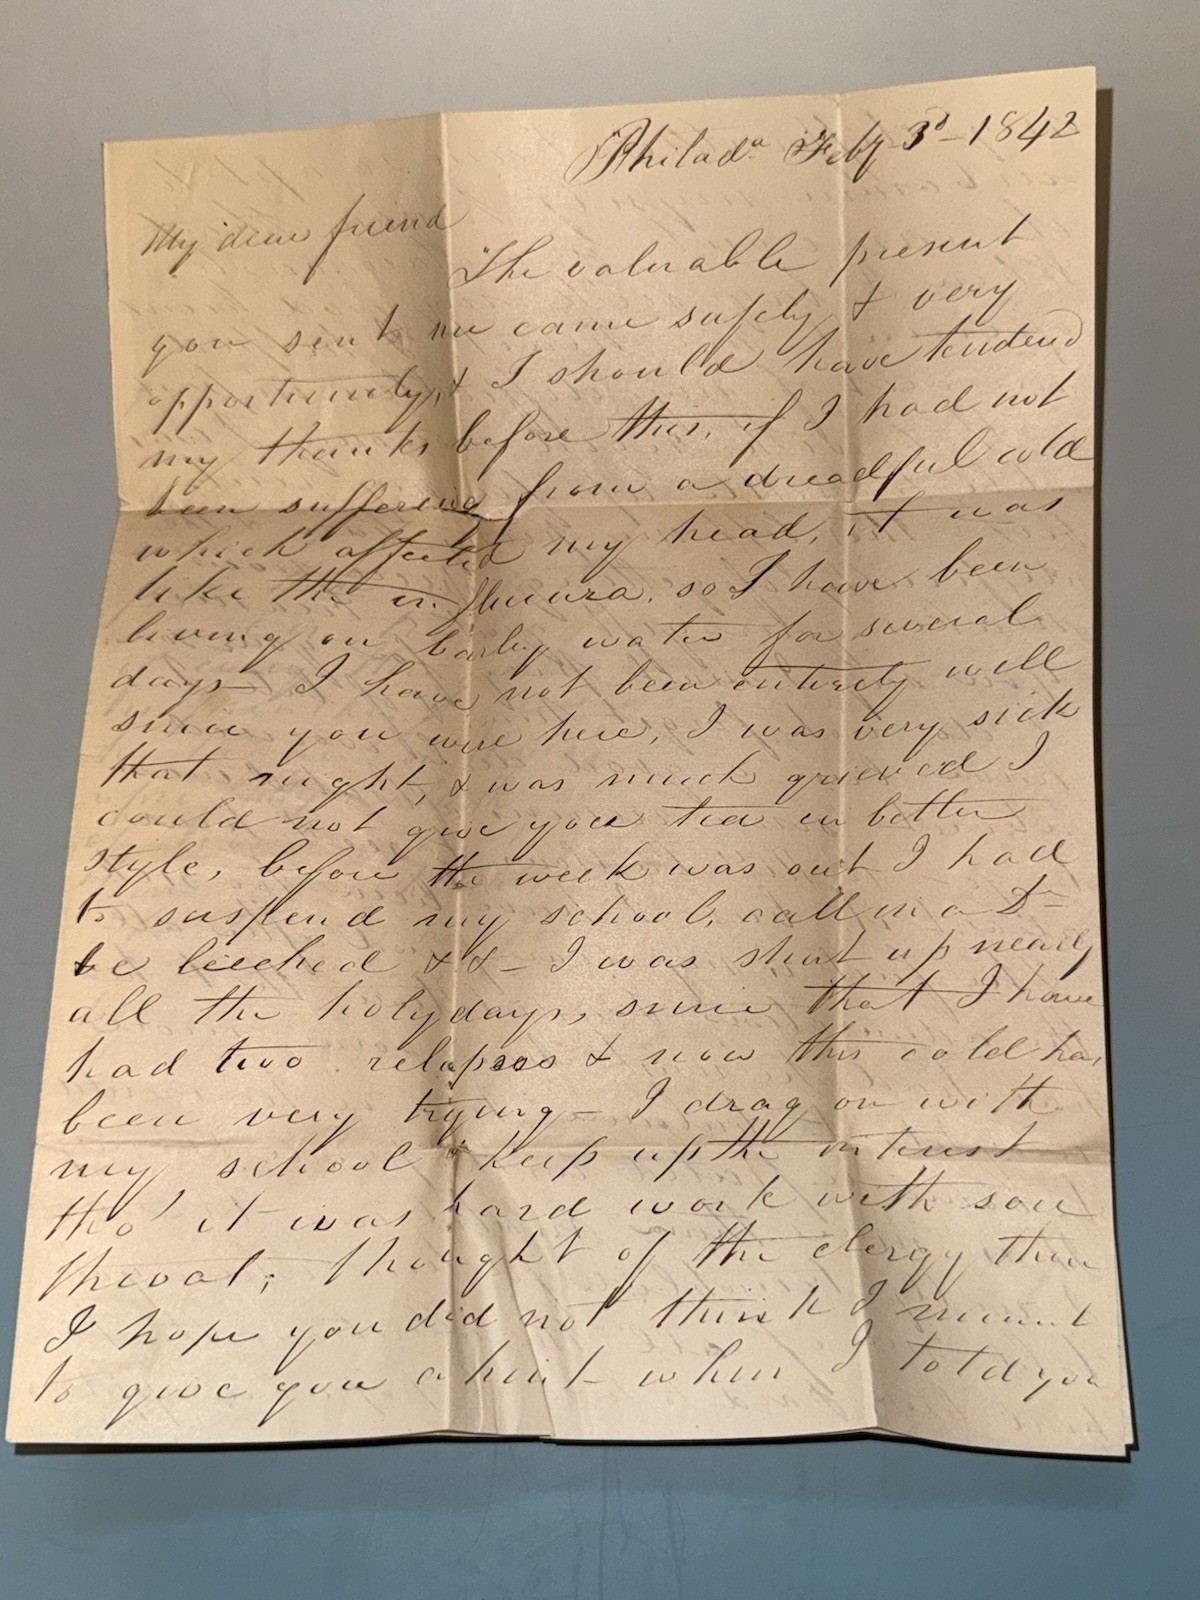 Philada Feby 3d - 1842
My dear friend
The valuable present
you sent me came safely & very
opportunely, & I should have tendered
my thanks before this, if I had not
been suffering from a dreadful cold
which affected my head, it was
like the influenza, so I have been
living on barley water for several
days - I have not been entirely well
since you were here, I was very sick
that night, & was much grieved I
could not give you tea in better
style, before the week was out I had
to suspend my school, call in a Dr -
be leeched & & - I was shut up nearly
all the holydays, since that I have
had two relapses & now this cold has
been very trying - I drag on with
my school & keep up the interest
tho' it was hard work with sore
throat; thought of the clergy then
I hope you did not think I meant
to give you a hint when I told you